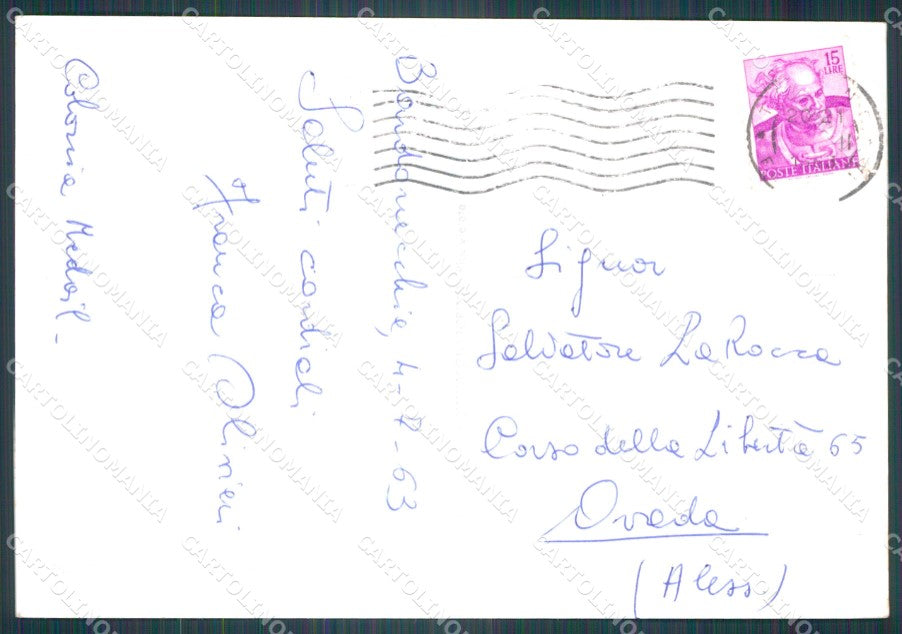 Bardonecchia, 4-7-63
Saluti cordiali
Franca Olivieri
Colonia Medail-
15
LIRE
POSTE ITALIANE
Signor
Salvatore La Rocca
Corso della Libertà 65
Ovada
(Aless)
CARTOLINOMANIA